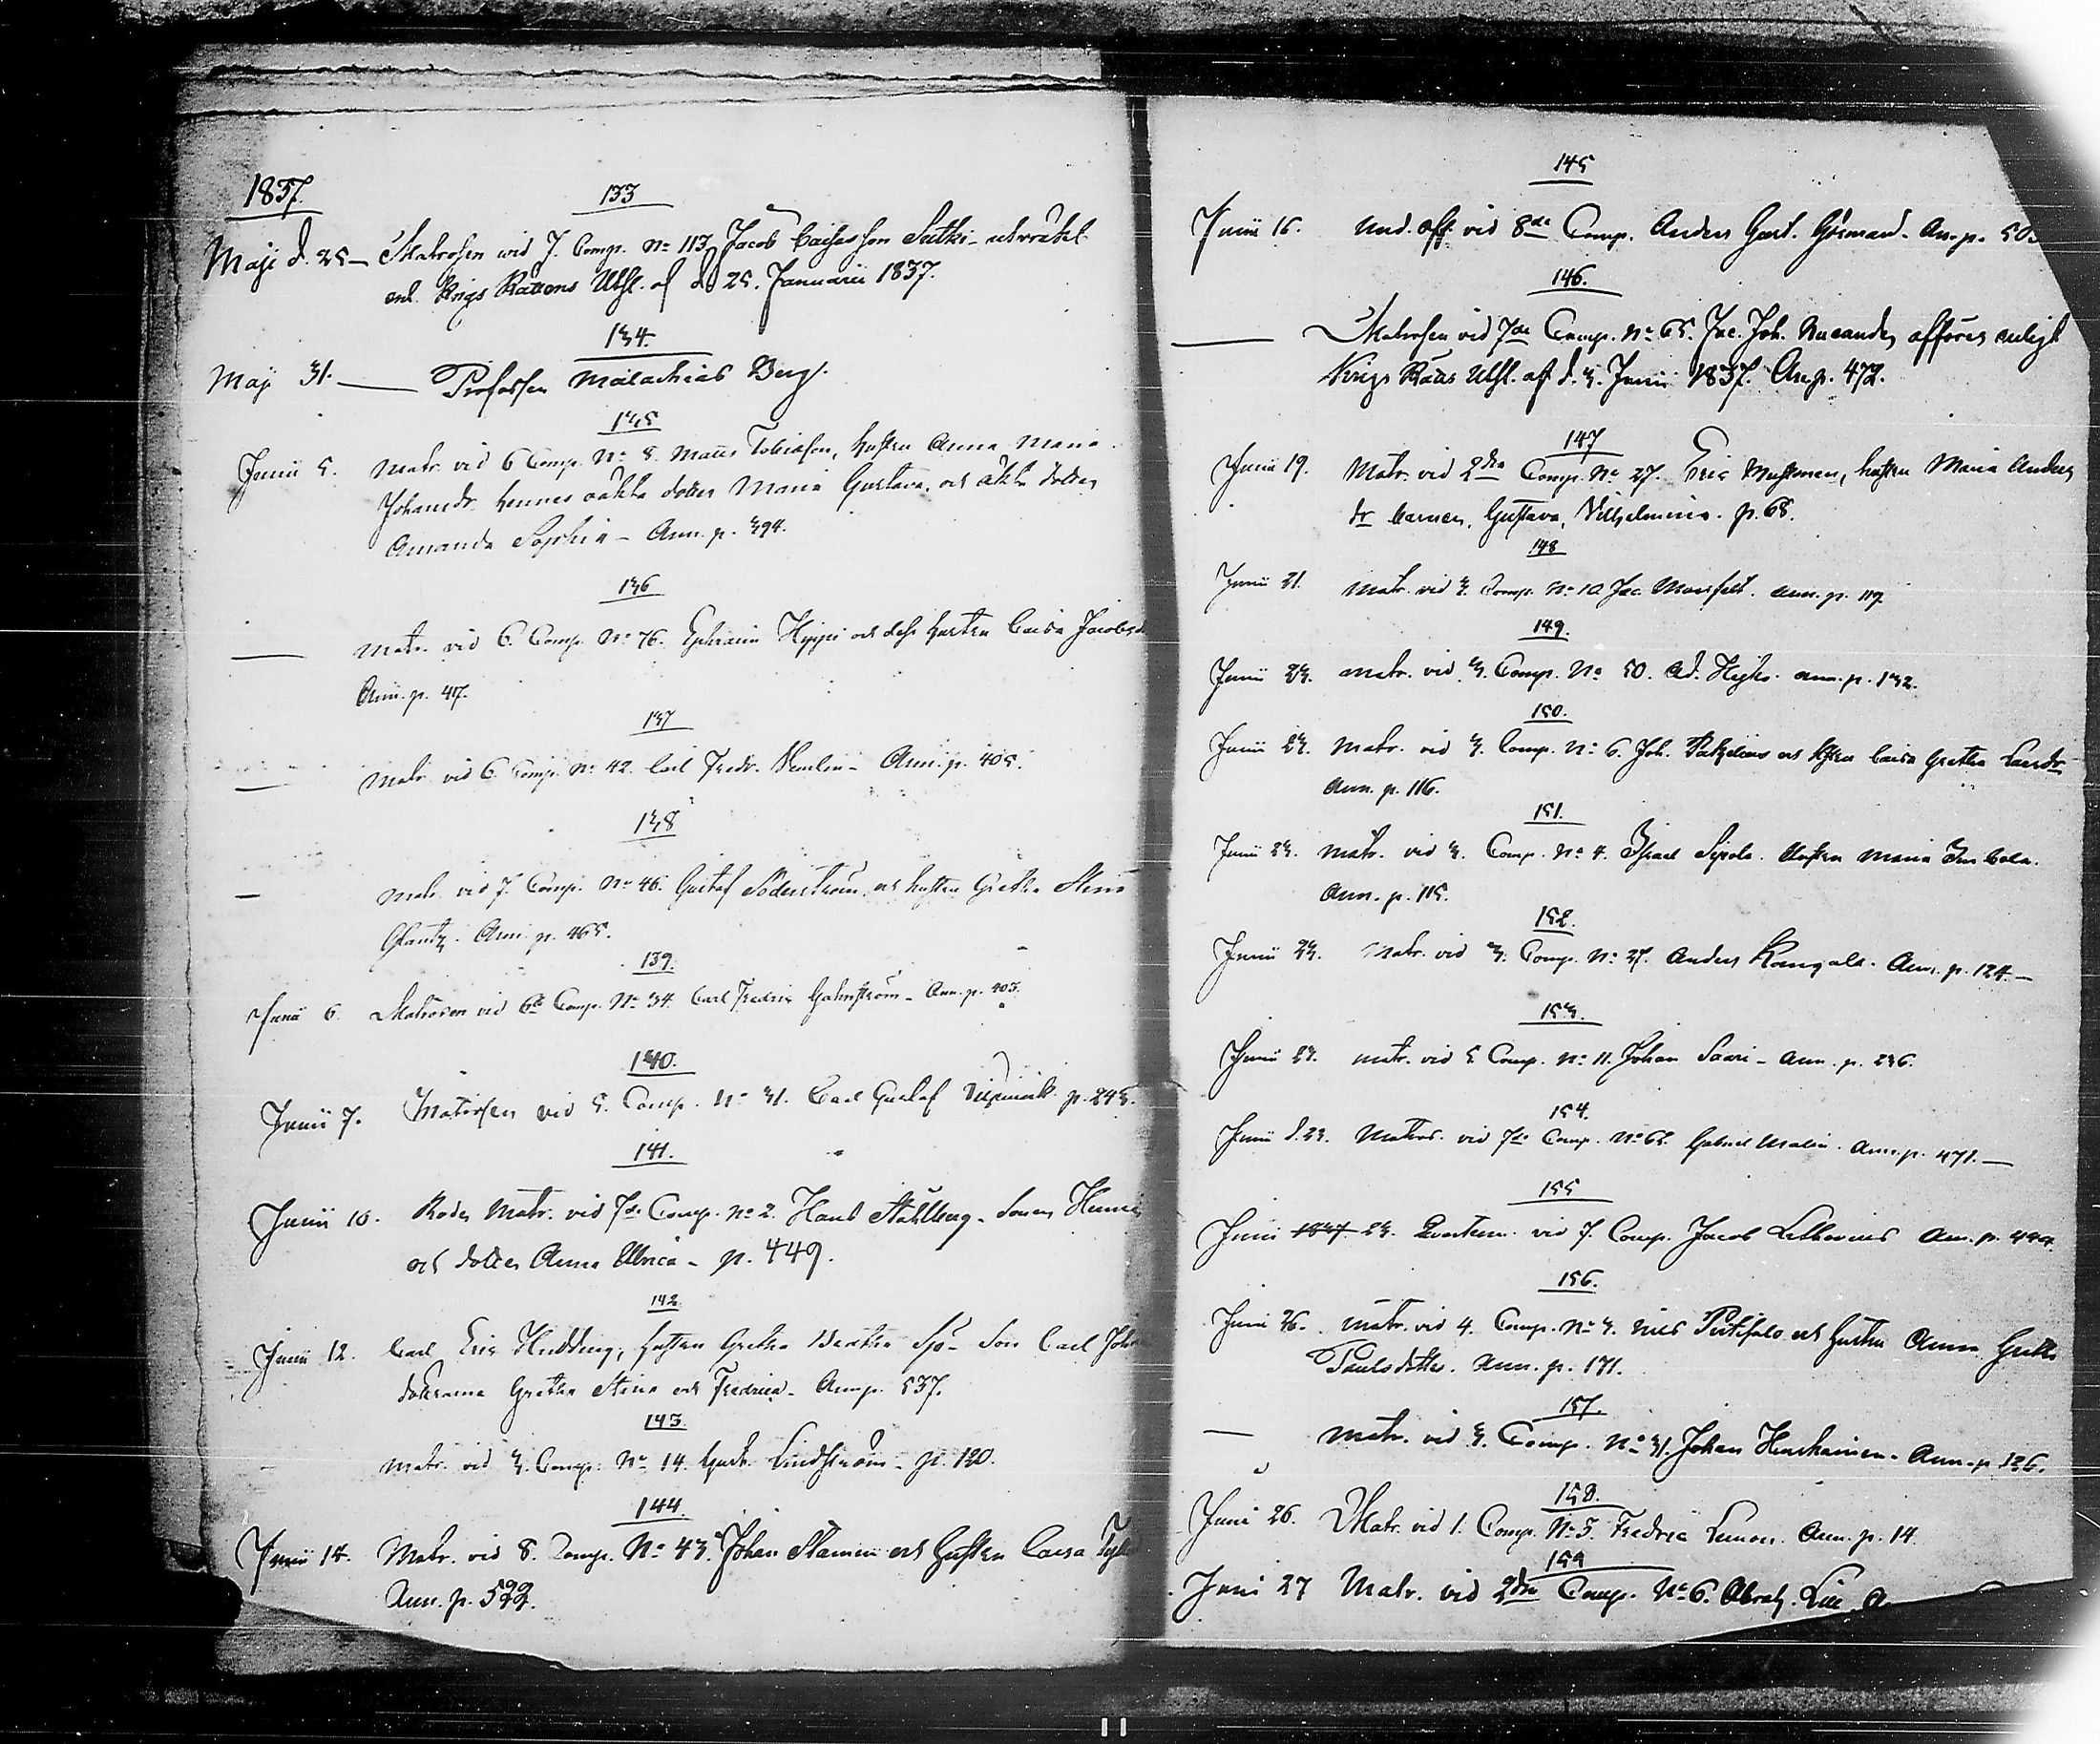 1837.
133
Maji d. 25 – Matrosen wid 7. Comp. No 113 Jacob Caisasson Sutki – utvräkt
enl. Krigs Rättens Utsl. af d. 25. Januarii 1837.
134.
Maji 31. — Profossen Malachias Berg.
135
Junii 5. Matr. vid 6 Comp. No 8. Matts Tobiasson, hustru Anna Maria
Johansdr hennes oäkta dotter Maria Gustava, och äkta dotter
Amanda Sophia – Ann. p. 394.
136
— Matr. vid 6. Comp. No 76. Ephraim Hyppi och dess hustru Caisa Jacobsd
Ann. p. 417.
137
— Matr. vid 6 Comp. No 42. Carl Fredr. Wenlin – Ann. p. 405.
138
— Matr. vid 7. Comp. No 46. Gustaf Söderström, och hustru Gretha Stina
Glantz. Ann. p. 465.
139.
Junii 6. Matrosen vid 6te Comp. No 34. Carl Fredric Holmström – Ann. p. 403.
140.
Junii 7. Matrosen vid 5. Comp. No 31. Carl Gustaf p. 243.
141.
Junii 10. Roder Matr. vid 7de Comp. No 2. Hans Ståhlberg – sonen
och dotter Anna Ulrica – p. 449.
142.
Junii 12. Carl Eric Hedberg, hustru Gretha Beatha Sjö – Son Carl Joha
döttrarna Gretha Stina och Fredrica – Ann p. 537.
143.
Matr. vid 3. Comp. No 14. Gust. Lindström – p. 120.
144.
Junii 14. Matr. vid 8. Comp. No 43. Johan Stamm och Hustru Caisa
Ann. p. 522.
145
Junii 16. Und. off. vid 8de Comp. Anders Gust. Görman. An. p. 50
146.
— Matrosen vid 7de Comp. No 65. Jac. Joh. Nucander afföres enligt
Krigs Räts Utsl. af d. 3. Junii 1837. An. p. 472.
147
Junii 19. Matr. vid 2dra Comp. No 27. Eric Mustonen, hustru Maria Anders
dr barnen, Gustava, Vilhelmina. p. 68.
148
Junii 21. Matr. vid 3. Comp. No 10 Jac. Mansfelt. Ann. p. 117.
149.
Junii 23. Matr. vid 3. Comp. No 50. Ad. Ann. p. 132.
150.
Junii 23. Matr. vid 3. Comp. No 6. Joh. och hstru Caisa Gretha Larsdr
Ann. p. 116.
151.
Junii 23. Matr. vid 3. Comp. No 4. Israel Sipola. Hustru Maria
Ann. p. 115.
152.
Junii 23. Matr. vid 3. Comp. No 27. Anders Kangala. Ann. p. 124. —
153.
Junii 23. Matr. vid 5 Comp. No 11. Johan Saari – Ann. p. 236.
154.
Junii d. 23. Matros. vid 7de Comp. No 62. Gabriel Malin. Ann. p. 471. —
155
Junii 1837 23. vid 7. Comp. Jacob Ann. p. 444.
156.
Junii 26. Matr. vid 4. Comp. No 3. Nils och hustru Anna Greta
Paulsdotter. Ann. p. 171.
157.
— Matr. vid 3. Comp. No 31. Johan Ann. p. 126.
158.
Juni 26. Matr. vid 1. Comp. No 5. Fredric Lemon. Ann. p. 14.
159
Juni 27 Matr. vid 2dra Comp. No 6. Abrah.